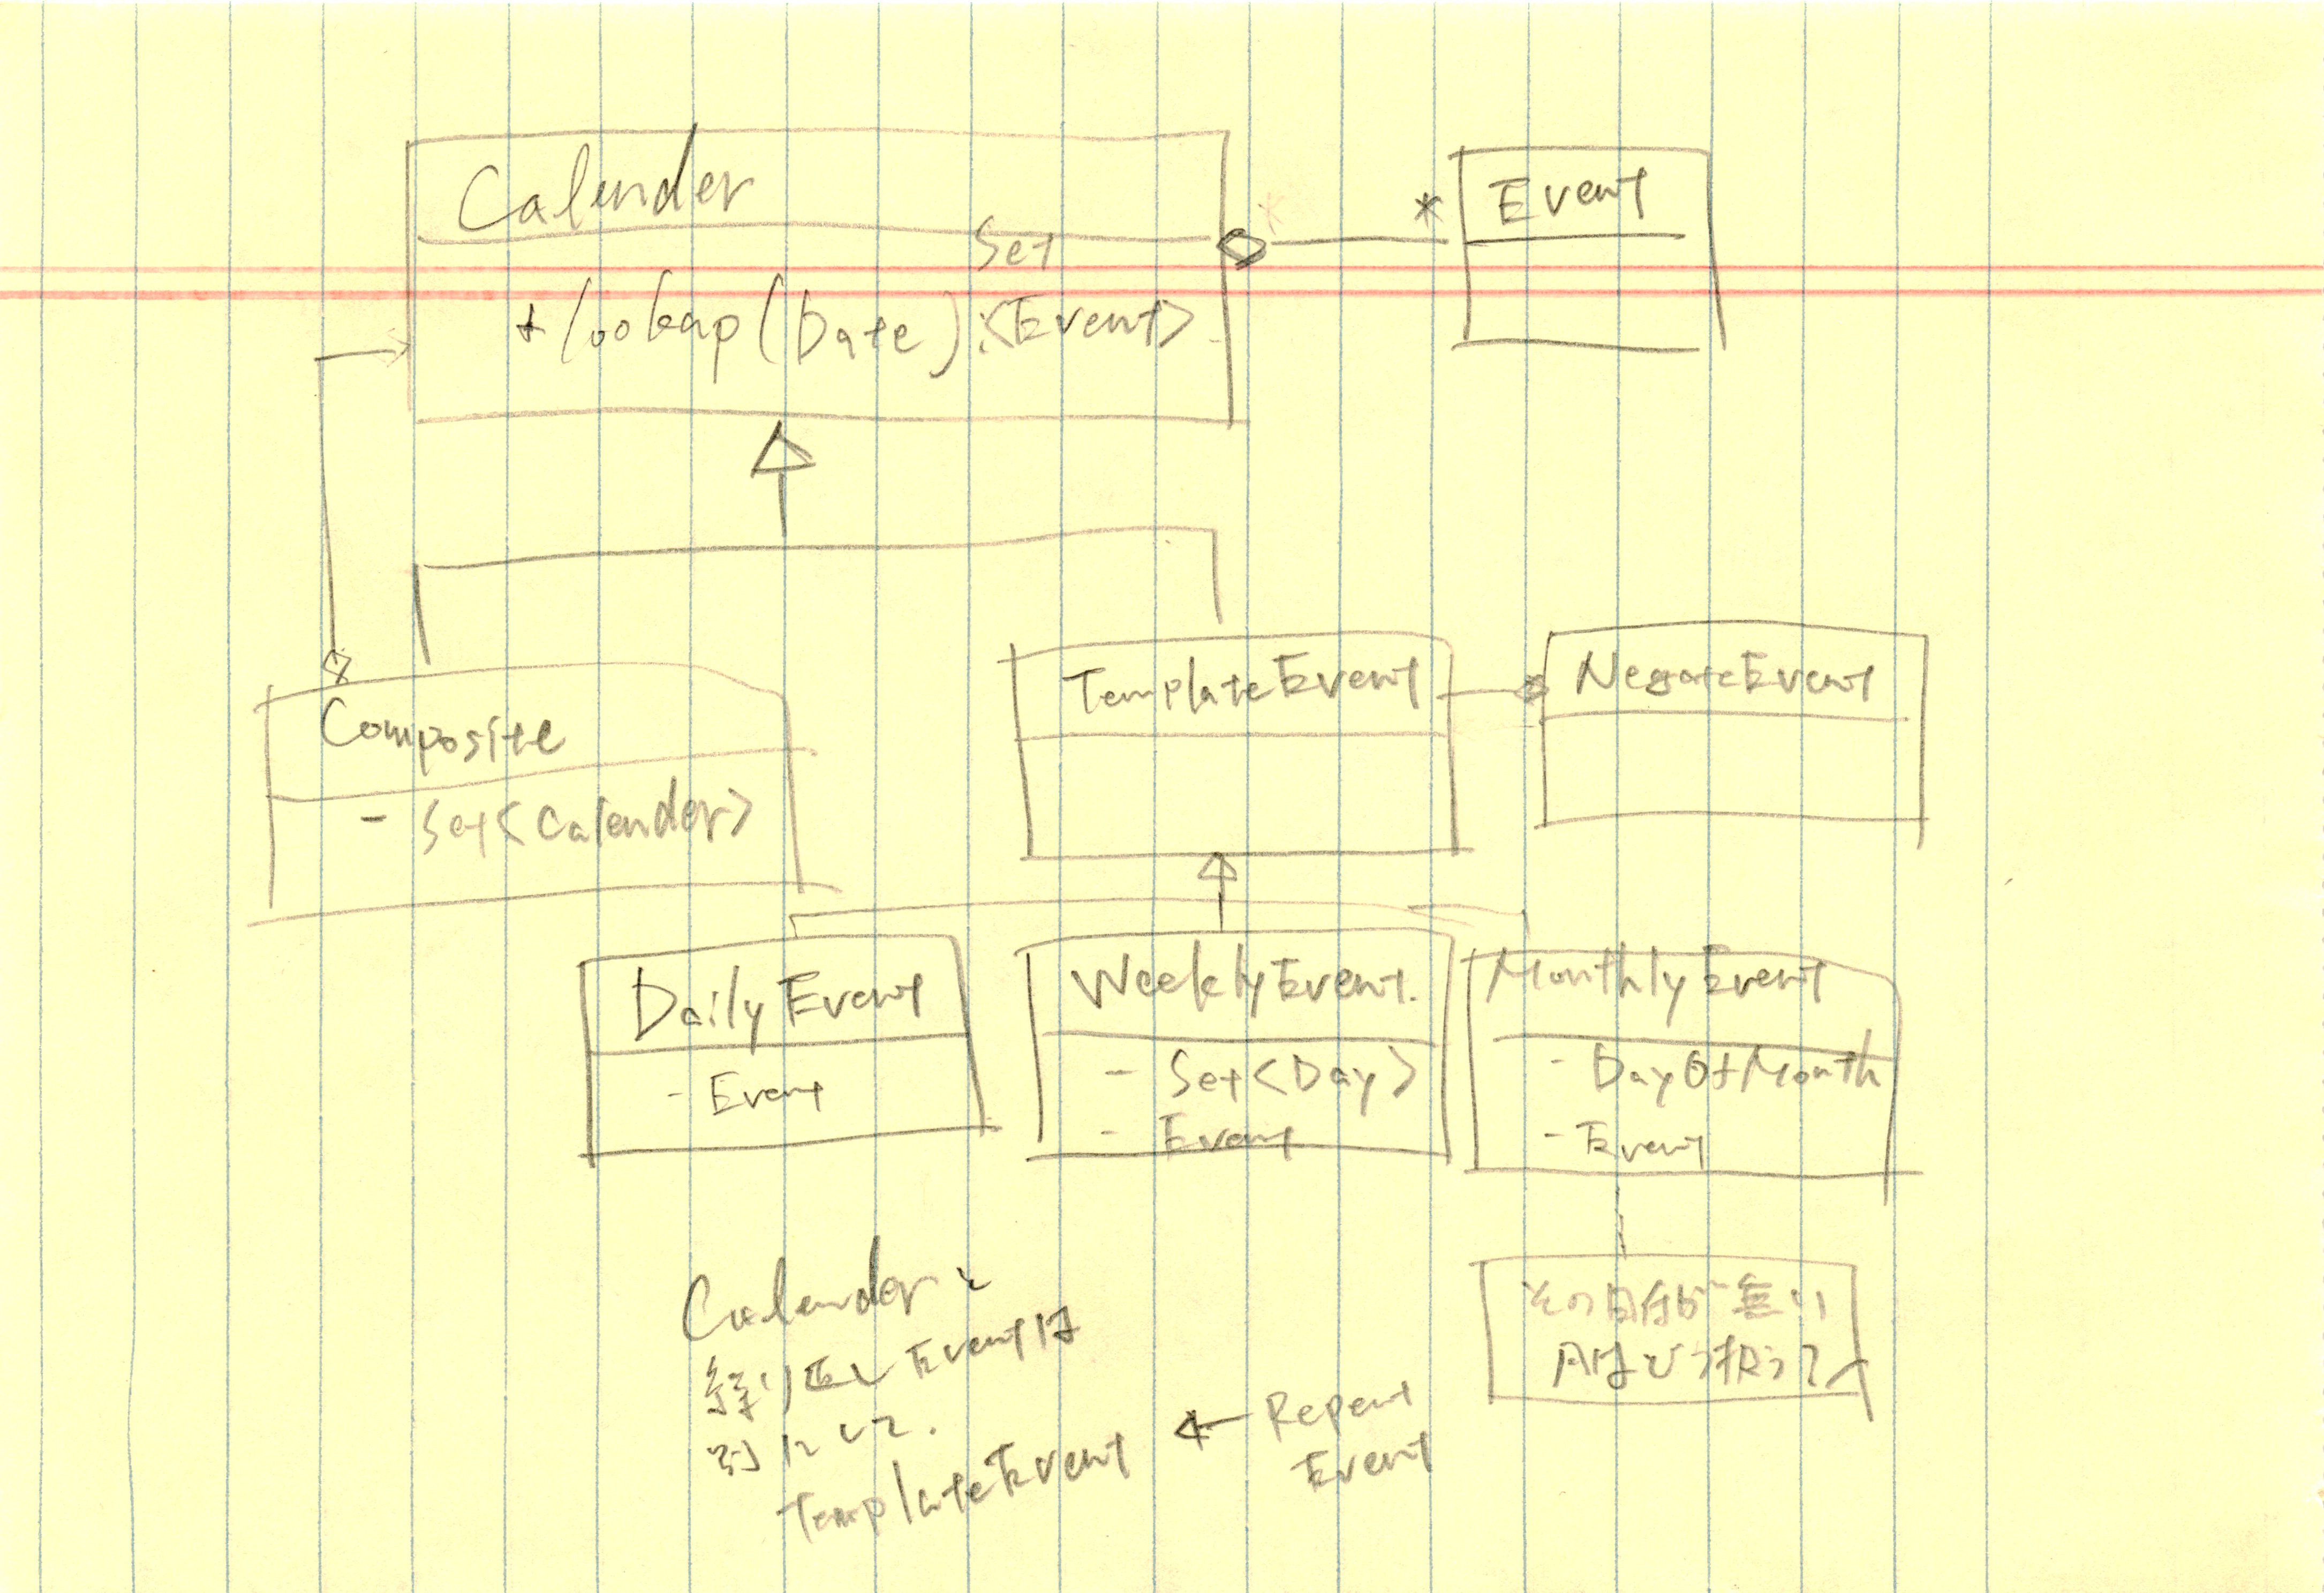 Calender
Set
+ lookup(Date):<Event>
* *
Event
Composite
- Set<Calender>
TemplateEvent
NegateEvent
DailyEvent
- Event
WeeklyEvent.
- Set<Day>
- Event
MonthlyEvent
- DayOfMonth
- Event
その日付が無い
月はどう扱う?
Calenderと
繰り返しEventは
別にして.
TemplateEvent
← Repeat
Event